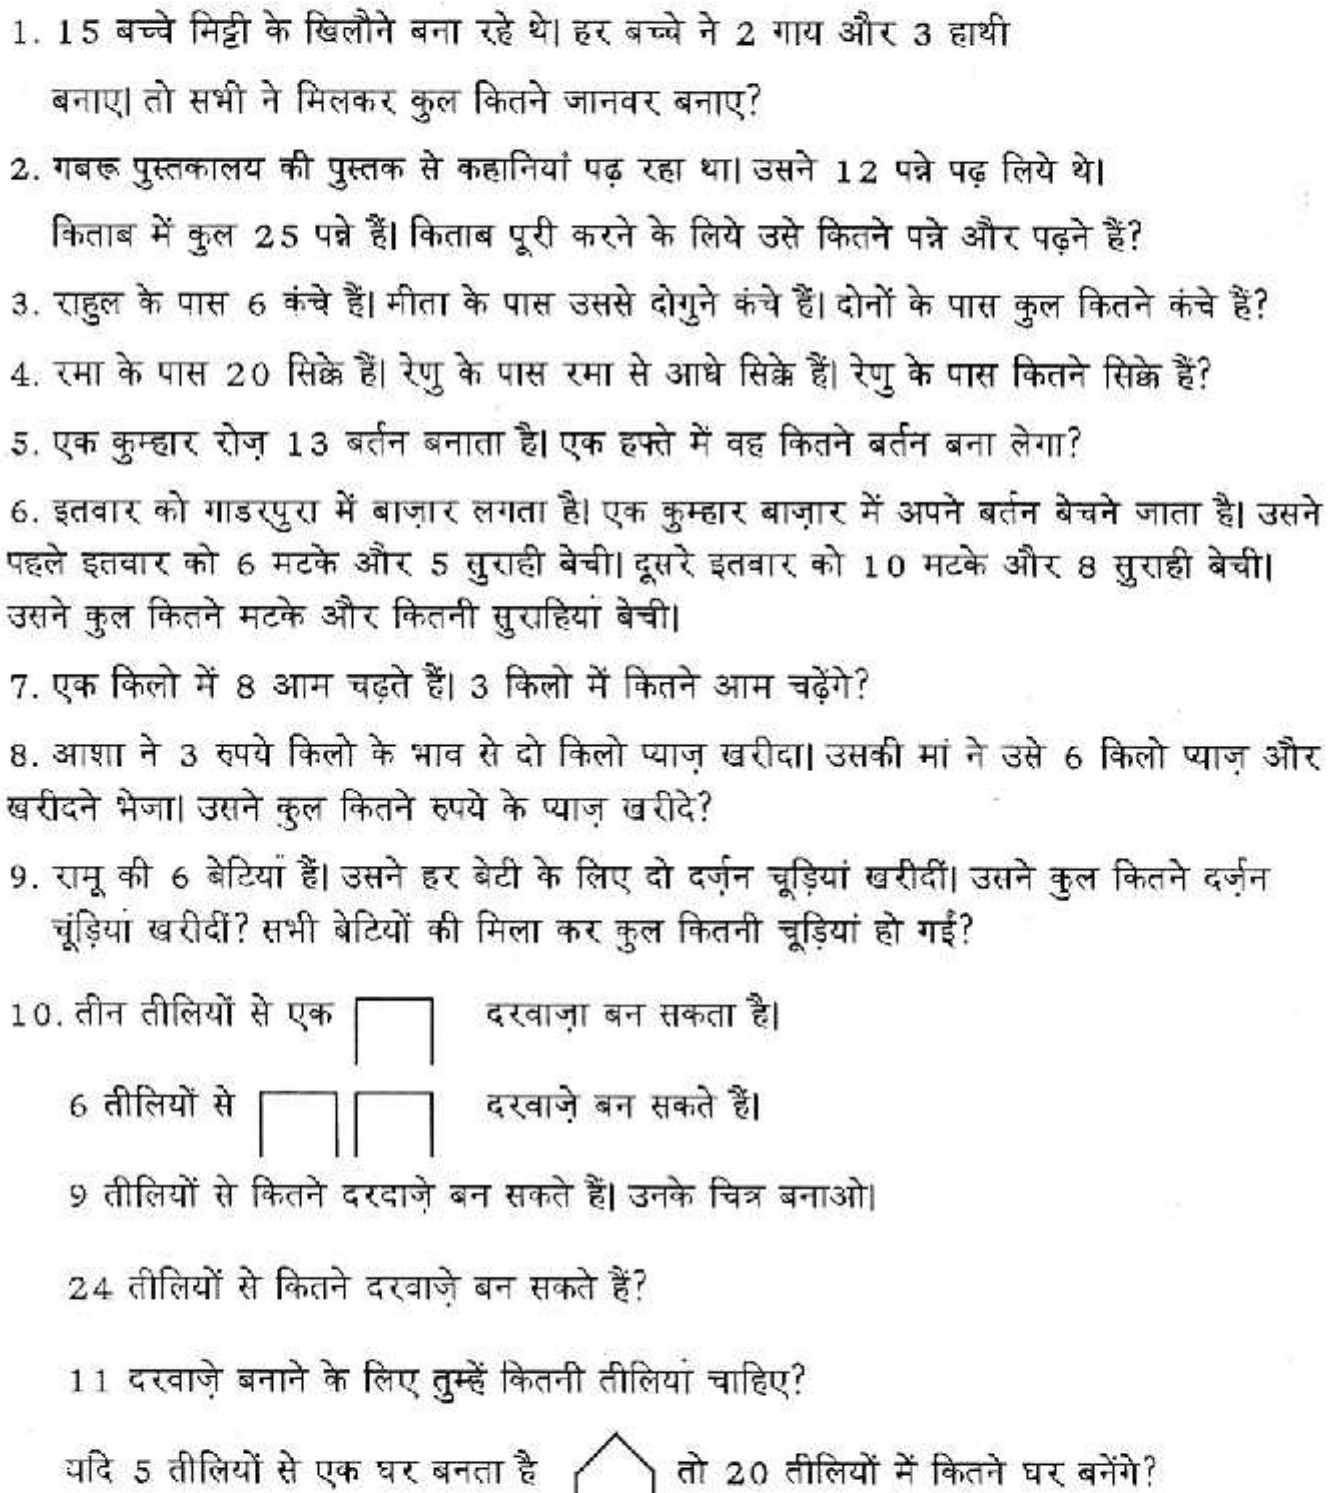 1. 15 बच्चे मिट्टी के खिलौने बना रहे थे। हर बच्चे ने 2 गाय और 3 हाथी
बनाए। तो सभी ने मिलकर कुल कितने जानवर बनाए?
2. गबरू पुस्तकालय की पुस्तक से कहानियां पढ़ रहा था। उसने 12 पन्ने पढ़ लिये थे।
किताब में कुल 25 पन्ने हैं। किताब पूरी करने के लिये उसे कितने पन्ने और पढ़ने हैं?
3. राहुल के पास 6 कंचे हैं। मीता के पास उससे दोगुने कंचे हैं। दोनों के पास कुल कितने कंचे हैं?
4. रमा के पास 20 सिक्के हैं। रेणु के पास रमा से आधे सिक्के हैं। रेणु के पास कितने सिक्के हैं?
5. एक कुम्हार रोज़ 13 बर्तन बनाता है। एक हफ्ते में वह कितने बर्तन बना लेगा?
6. इतवार को गाडरपुरा में बाज़ार लगता है। एक कुम्हार बाज़ार में अपने बर्तन बेचने जाता है। उसने
पहले इतवार को 6 मटके और 5 सुराही बेची। दूसरे इतवार को 10 मटके और 8 सुराही बेची।
उसने कुल कितने मटके और कितनी सुराहियां बेची।
7. एक किलो में 8 आम चढ़ते हैं। 3 किलो में कितने आम चढ़ेंगे?
8. आशा ने 3 रुपये किलो के भाव से दो किलो प्याज़ खरीदा। उसकी मां ने उसे 6 किलो प्याज़ और
खरीदने भेजा। उसने कुल कितने रुपये के प्याज़ खरीदे?
9. रामू की 6 बेटियां हैं। उसने हर बेटी के लिए दो दर्ज़न चूड़ियां खरीदीं। उसने कुल कितने दर्ज़न
चूंड़ियां खरीदीं? सभी बेटियों की मिला कर कुल कितनी चूड़ियां हो गईं?
10. तीन तीलियों से एक दरवाज़ा बन सकता है।
6 तीलियों से दरवाज़े बन सकते हैं।
9 तीलियों से कितने दरदाज़े बन सकते हैं। उनके चित्र बनाओ।
24 तीलियों से कितने दरवाज़े बन सकते हैं?
11 दरवाज़े बनाने के लिए तुम्हें कितनी तीलियां चाहिए?
यदि 5 तीलियों से एक घर बनता है तो 20 तीलियों में कितने घर बनेंगे?